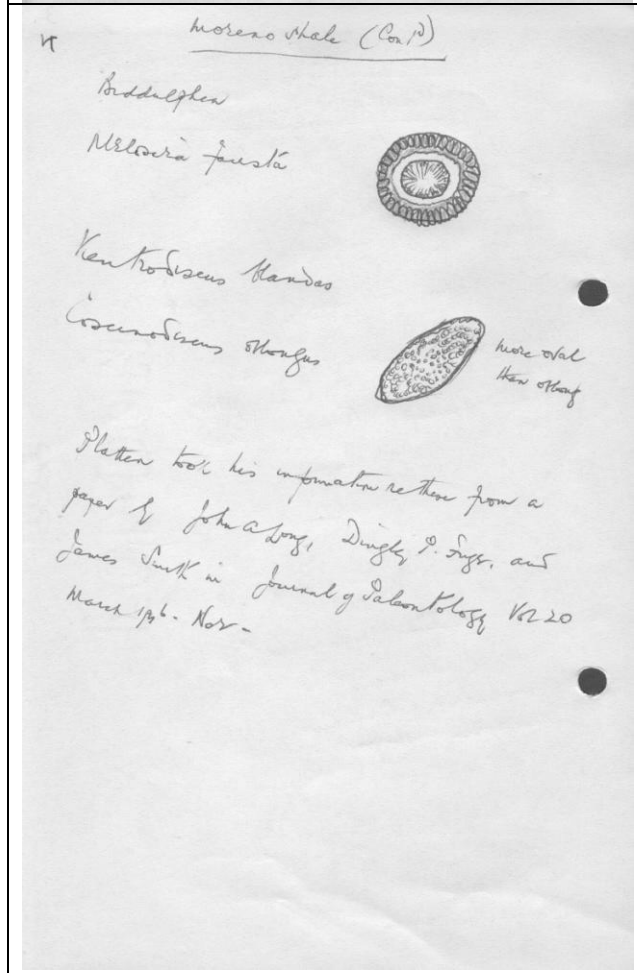 Moreno Shale (Con^td)
Biddulphia
Melosira fausta
Kentrodiscus blandus
Coscinodiscus oblongus
more oval
then oblong
Platten took his information re these from a
paper by John A Long, Dingley P. Fuge, and
James Smith in Journal of Paleontology Vol 20
March 1946 - No 2 -